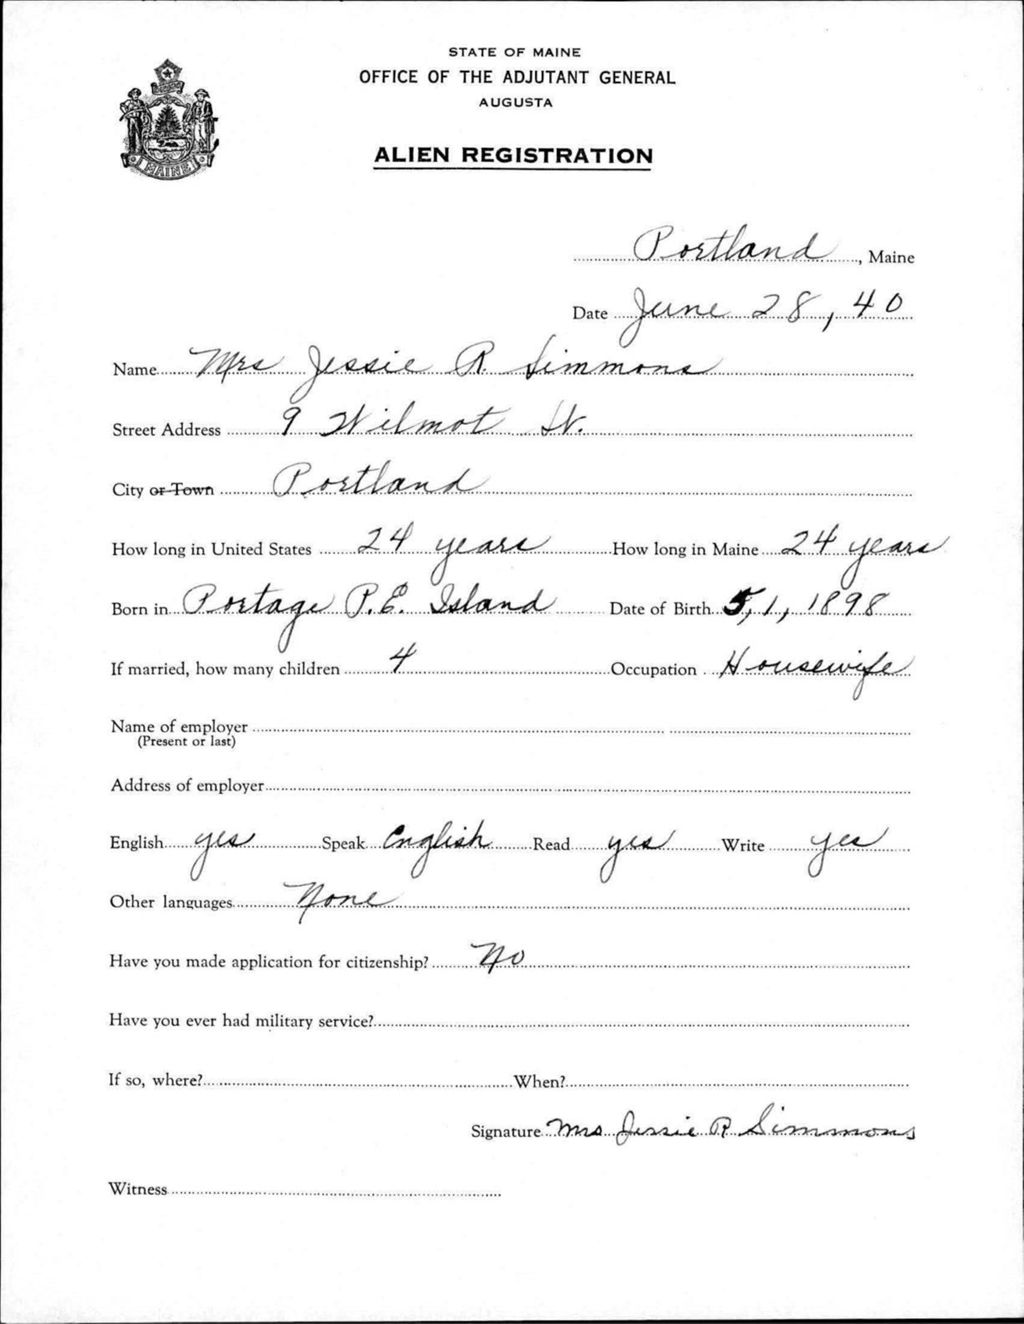 STATE OF MAINE
OFFICE OF THE ADJUTANT GENERAL
AUGUSTA
ALIEN REGISTRATION
MAINE
Portland, Maine
Date June 28, 40
Name Mrs Jessie R. Simmons
Street Address 9 Wilmot St.
City or Town Portland
How long in United States 24 years How long in Maine 24 years
Born in Portage P.E. Island Date of Birth 5, 1, 1898
If married, how many children 4 Occupation Housewife
Name of employer
(Present or last)
Address of employer
English yes Speak English Read yes Write yes
Other languages None
Have you made application for citizenship? No
Have you ever had military service?
If so, where? When?
Signature Mrs Jessie R Simmons
Witness